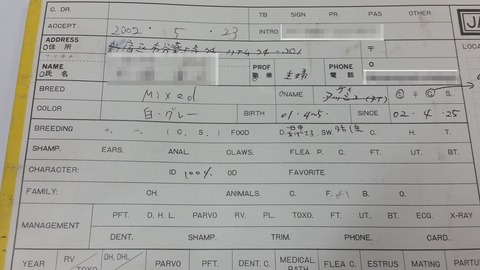 O. DR. TB SIGN PR PAS OTHER
ACCEPT 2002 . 5 . 23 INTRO
ADDRESS
住所 〒
NAME PROF 主婦 PHONE
氏名 電話
BREED Mixed NAME
COLOR 白・グレー BIRTH 01・4・25. SINCE 02. 4. 25
BREEDING (C, S,) FOOD D. SW. C. H. T.
SHAMP. EARS. ANAL. CLAWS. FLEA P C. FT. UT. BT.
CHARACTER: ID 100% OD FAVORITE
FAMILY: CH. ANIMALS. C. F. B. O.
MANAGEMENT PFT. D. H. L. PARVO RV. PL. TOXO. FT. UT. BT. ECG. X-RAY
DENT. SHAMP. TRIM. PHONE. CARD.
YEAR RV / TOXO. DH, DHL PFT PARVO PFT. DENT. C. MEDICAL BATH FLEA C. ESTRUS MATING PARTU